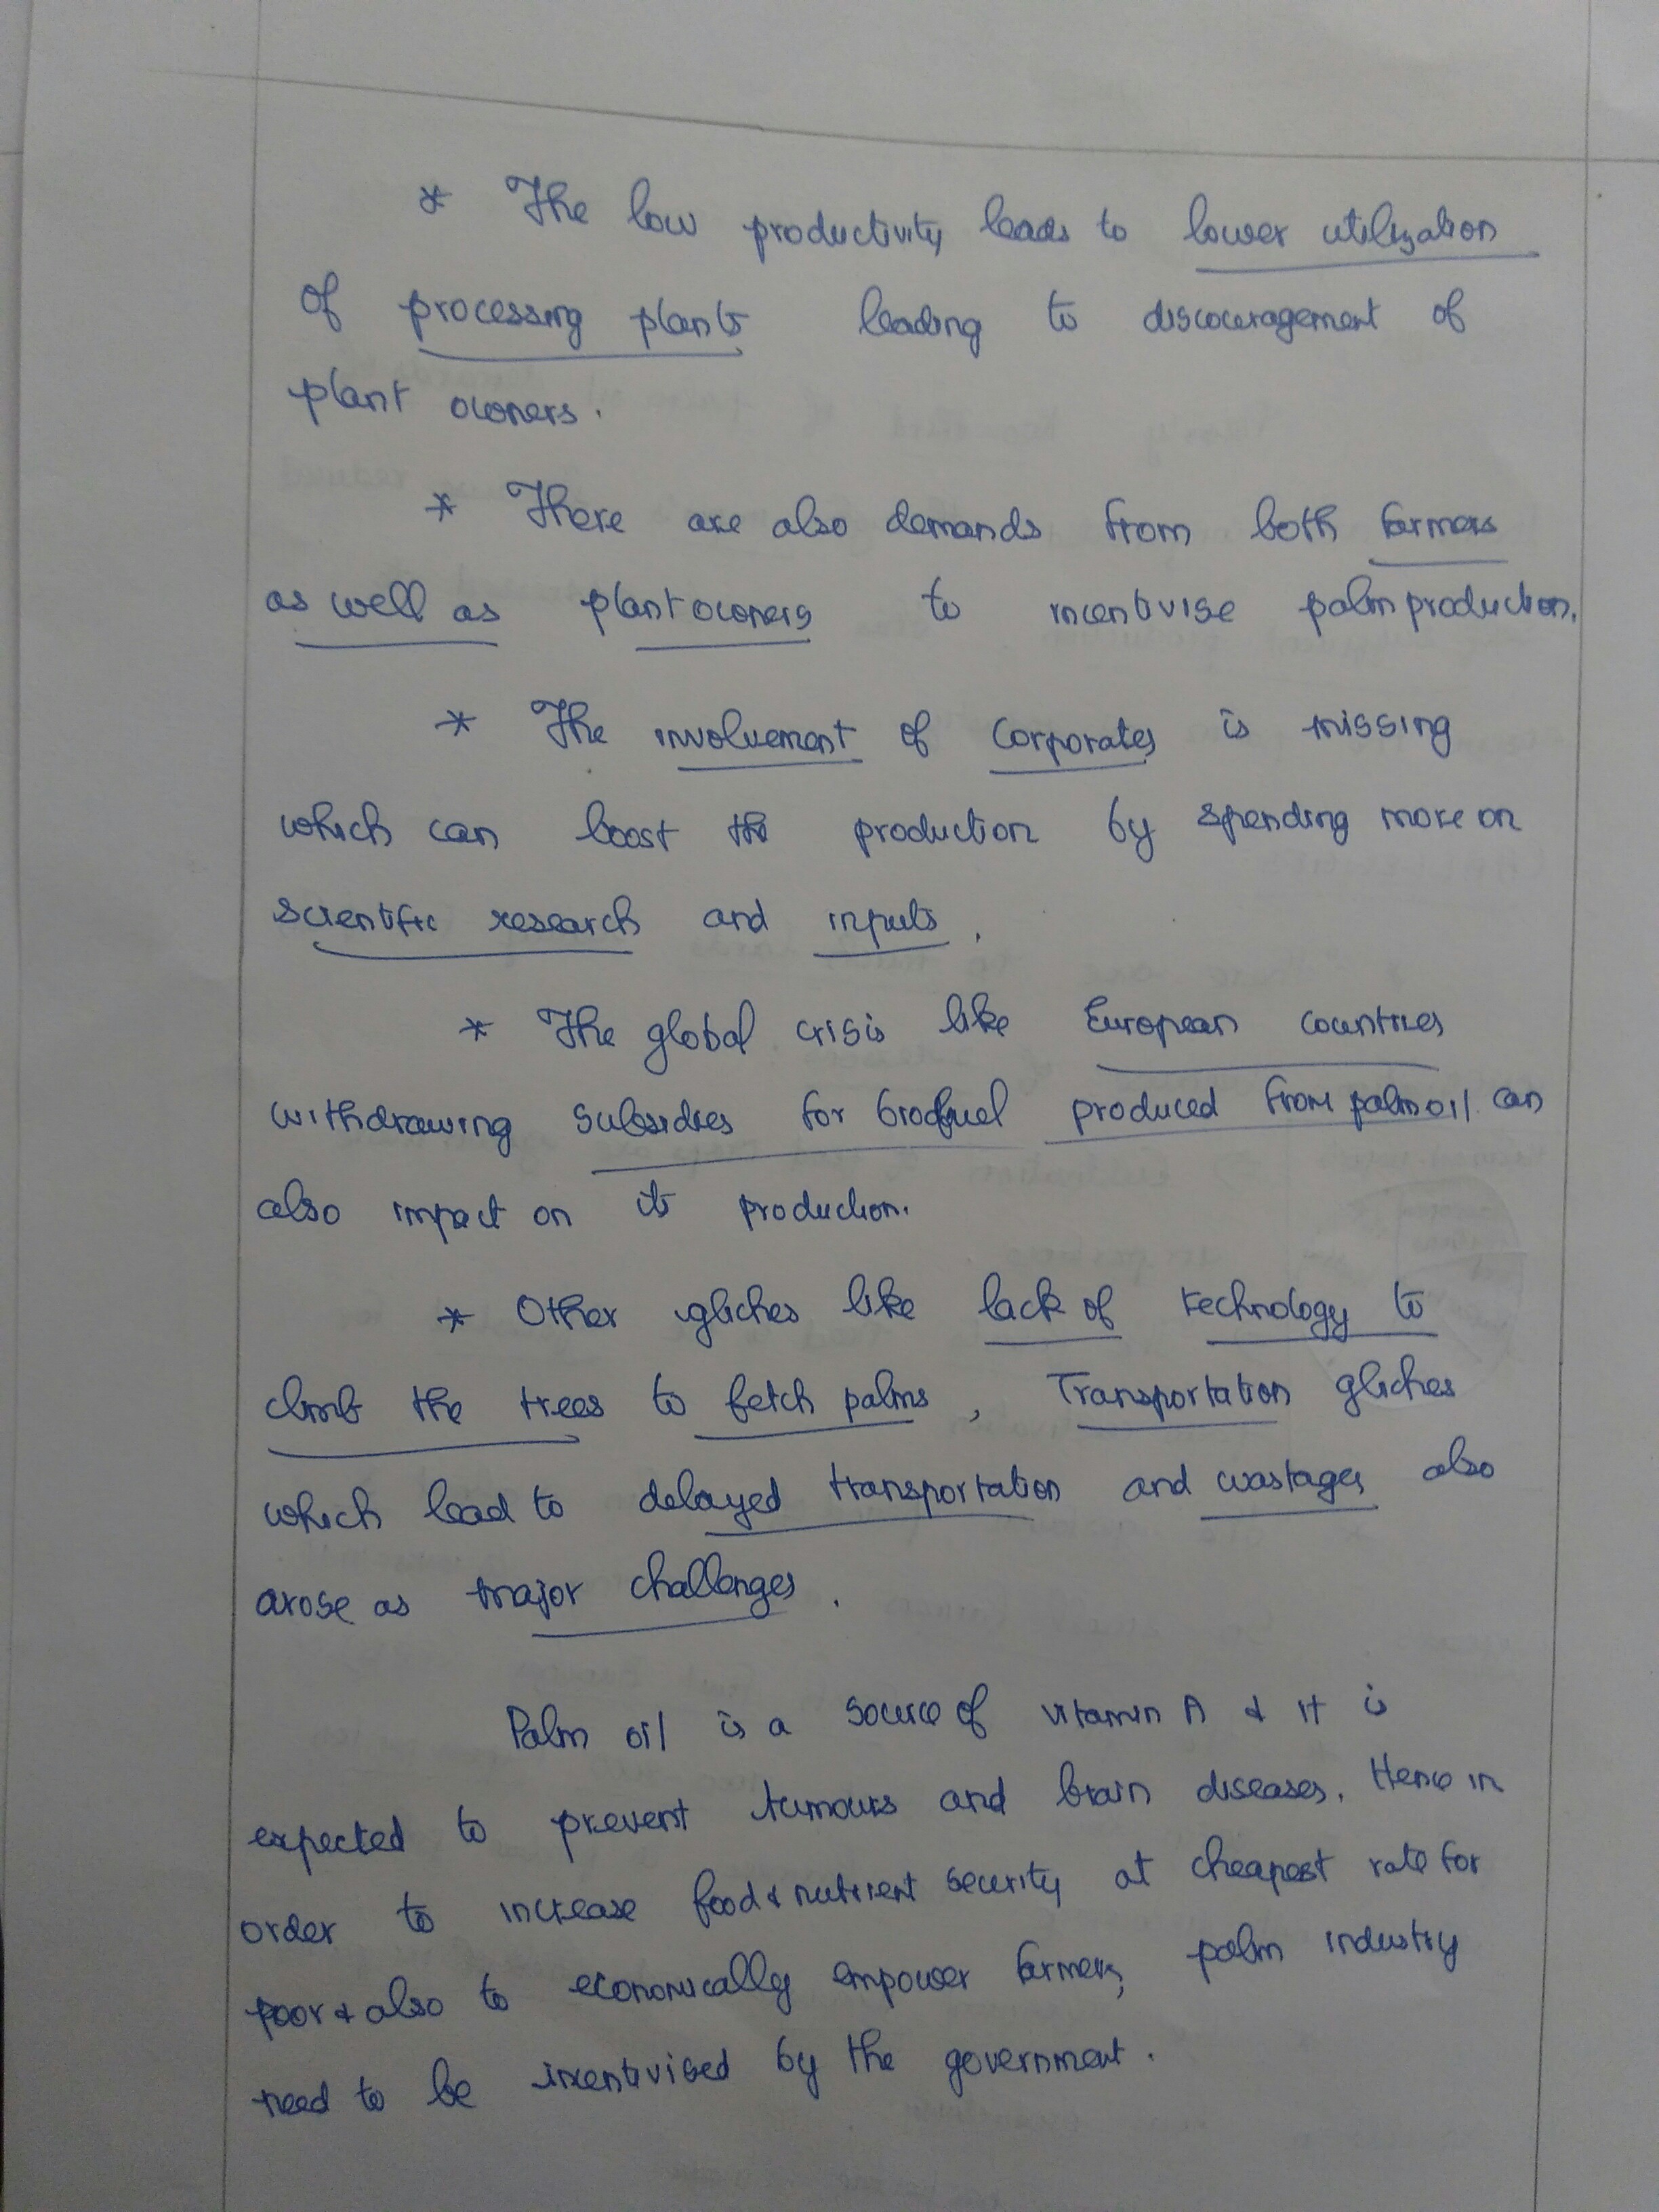 * The low productivity leads to lower utilization
of processing plants leading to discouragement of
plant owners.
* There are also demands from both farmers
as well as plant owners to incentivise palm production.
* The involvement of corporates is missing
which can boost the production by spending more on
scientific research and inputs.
* The global crisis like European countries
withdrawing subsidies for biofuel produced from palm oil can
also impact on its production.
* Other gliches like lack of technology to
climb the trees to fetch palms, Transportation gliches
which lead to delayed transportation and wastages also
arose as major challenges.
Palm oil is a source of vitamin A & it is
expected to prevent tumours and brain diseases. Hence in
order to increase food & nutrient security at cheapest rate for
poor & also to economically empower farmers, palm industry
need to be incentivised by the government.